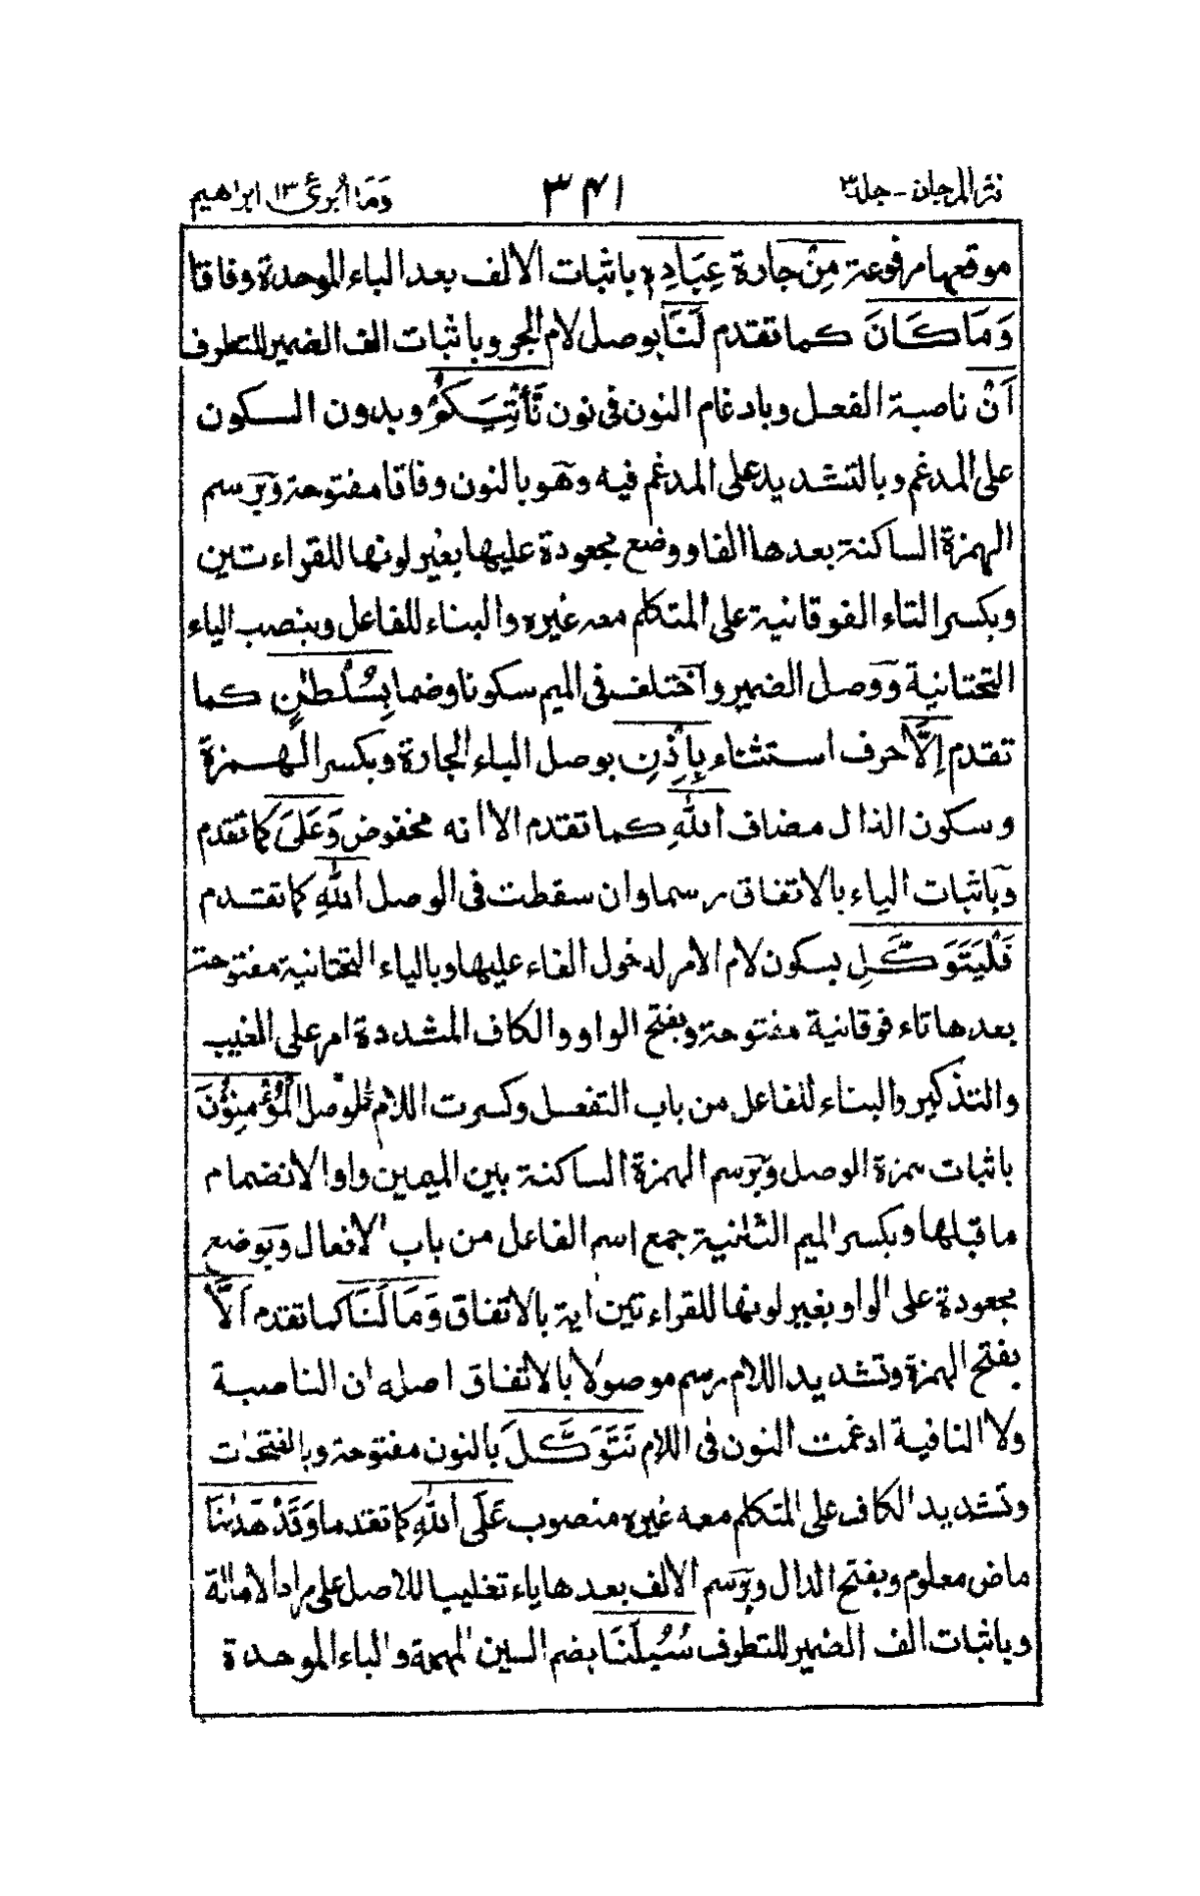 نثر المرجان - جلد ٣
٣٤١
وَمَا أُبَرِّئُ ١٣ ابراهيم
موقعها مرفوعة مِنْ جارة عِبَادِهِ باثبات الالف بعد الباء الموحدة وفاقا
وَمَا كَانَ كما تقدم لَنَا بوصل لام الجر وباثبات الف الضمير للتطرف
اَنْ ناصبة الفعل وبادغام النون فى نون نَّأْتِيَكُمْ وبدون السكون
على المدغم وبالتشديد على المدغم فيه وهو بالنون وفاقا مفتوحة وبرسم
الهمزة الساكنة بعدها الفا ووضع مجعودة عليها بغير لونها للقراءتين
وبكسر التاء الفوقانية على المتكلم معه غيره والبناء للفاعل وبنصب الياء
التحتانية ووصل الضمير واختلف فى الميم سكونا وضما بِسُلْطٰنٍ كما
تقدم اِلَّا حرف استثناء بِاِذْنِ بوصل الباء الجارة وبكسر الهمزة
وسكون الذال مضاف اللّٰهِ كما تقدم الا انه مخفوض وَعَلَى كما تقدم
وباثبات الياء بالاتفاق رسما وان سقطت فى الوصل اللّٰهِ كما تقدم
فَلْيَتَوَكَّلِ بسكون لام الامر لدخول الفاء عليها وبالياء التحتانية مفتوحة
بعدها تاء فوقانية مفتوحة وبفتح الواو والكاف المشددة امر على المغيب
والتذكير والبناء للفاعل من باب التفعل وكسرت اللام للوصل الْمُؤْمِنُوْنَ
باثبات همزة الوصل وبرسم الهمزة الساكنة بين الميمين واوا لانضمام
ما قبلها وبكسر الميم الثانية جمع اسم الفاعل من باب الافعال وبوضع
مجعودة على الواو بغير لونها للقراءتين اية بالاتفاق وَمَا لَنَا كما تقدم اَلَّا
بفتح الهمزة وتشديد اللام رسم موصولا بالاتفاق اصله ان الناصبة
ولا النافية ادغمت النون فى اللام نَتَوَكَّلَ بالنون مفتوحة وبالفتحات
وتشديد الكاف على المتكلم معه غيره منصوب عَلَى اللّٰهِ كما تقدما وَقَدْ هَدٰىنَا
ماض معلوم وبفتح الدال وبرسم الالف بعدها ياء تغليبا للاصل على مراد الامالة
وباثبات الف الضمير للتطرف سُبُلَنَا بضم السين المهملة والباء الموحدة